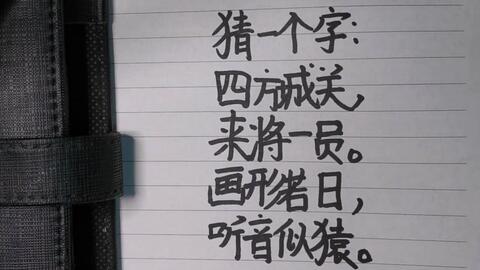 猜一个字:
四方城关,
来将一员。
画形若日,
听音似猿。